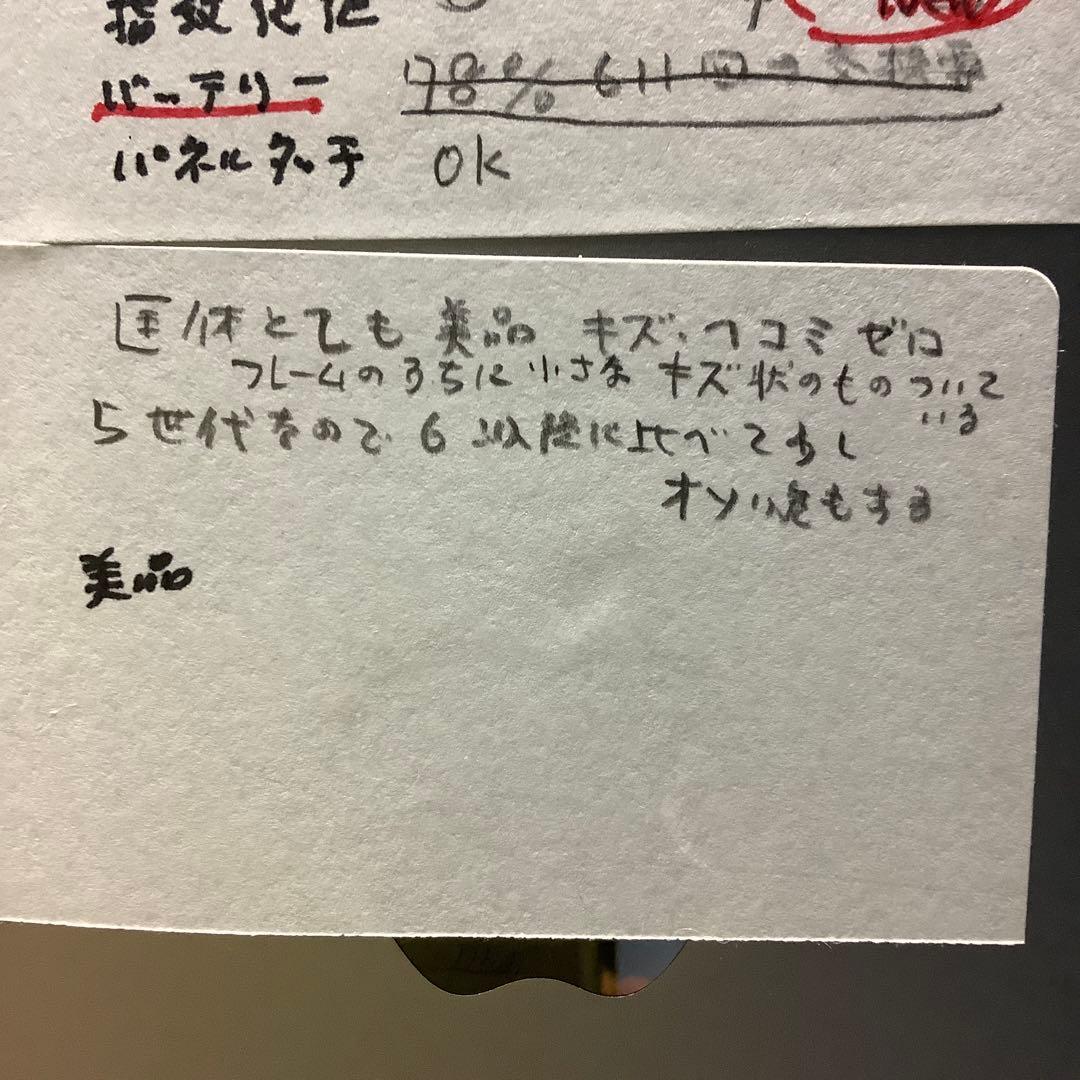 バッテリー 78% 611回
パネルタッチ OK
匡体とても美品 キズ、ヘコミ ゼロ
フレームのうちに小さな キズ状のものついて
いる
5世代なので 6以降に比べて少し
オソい気もする
美品